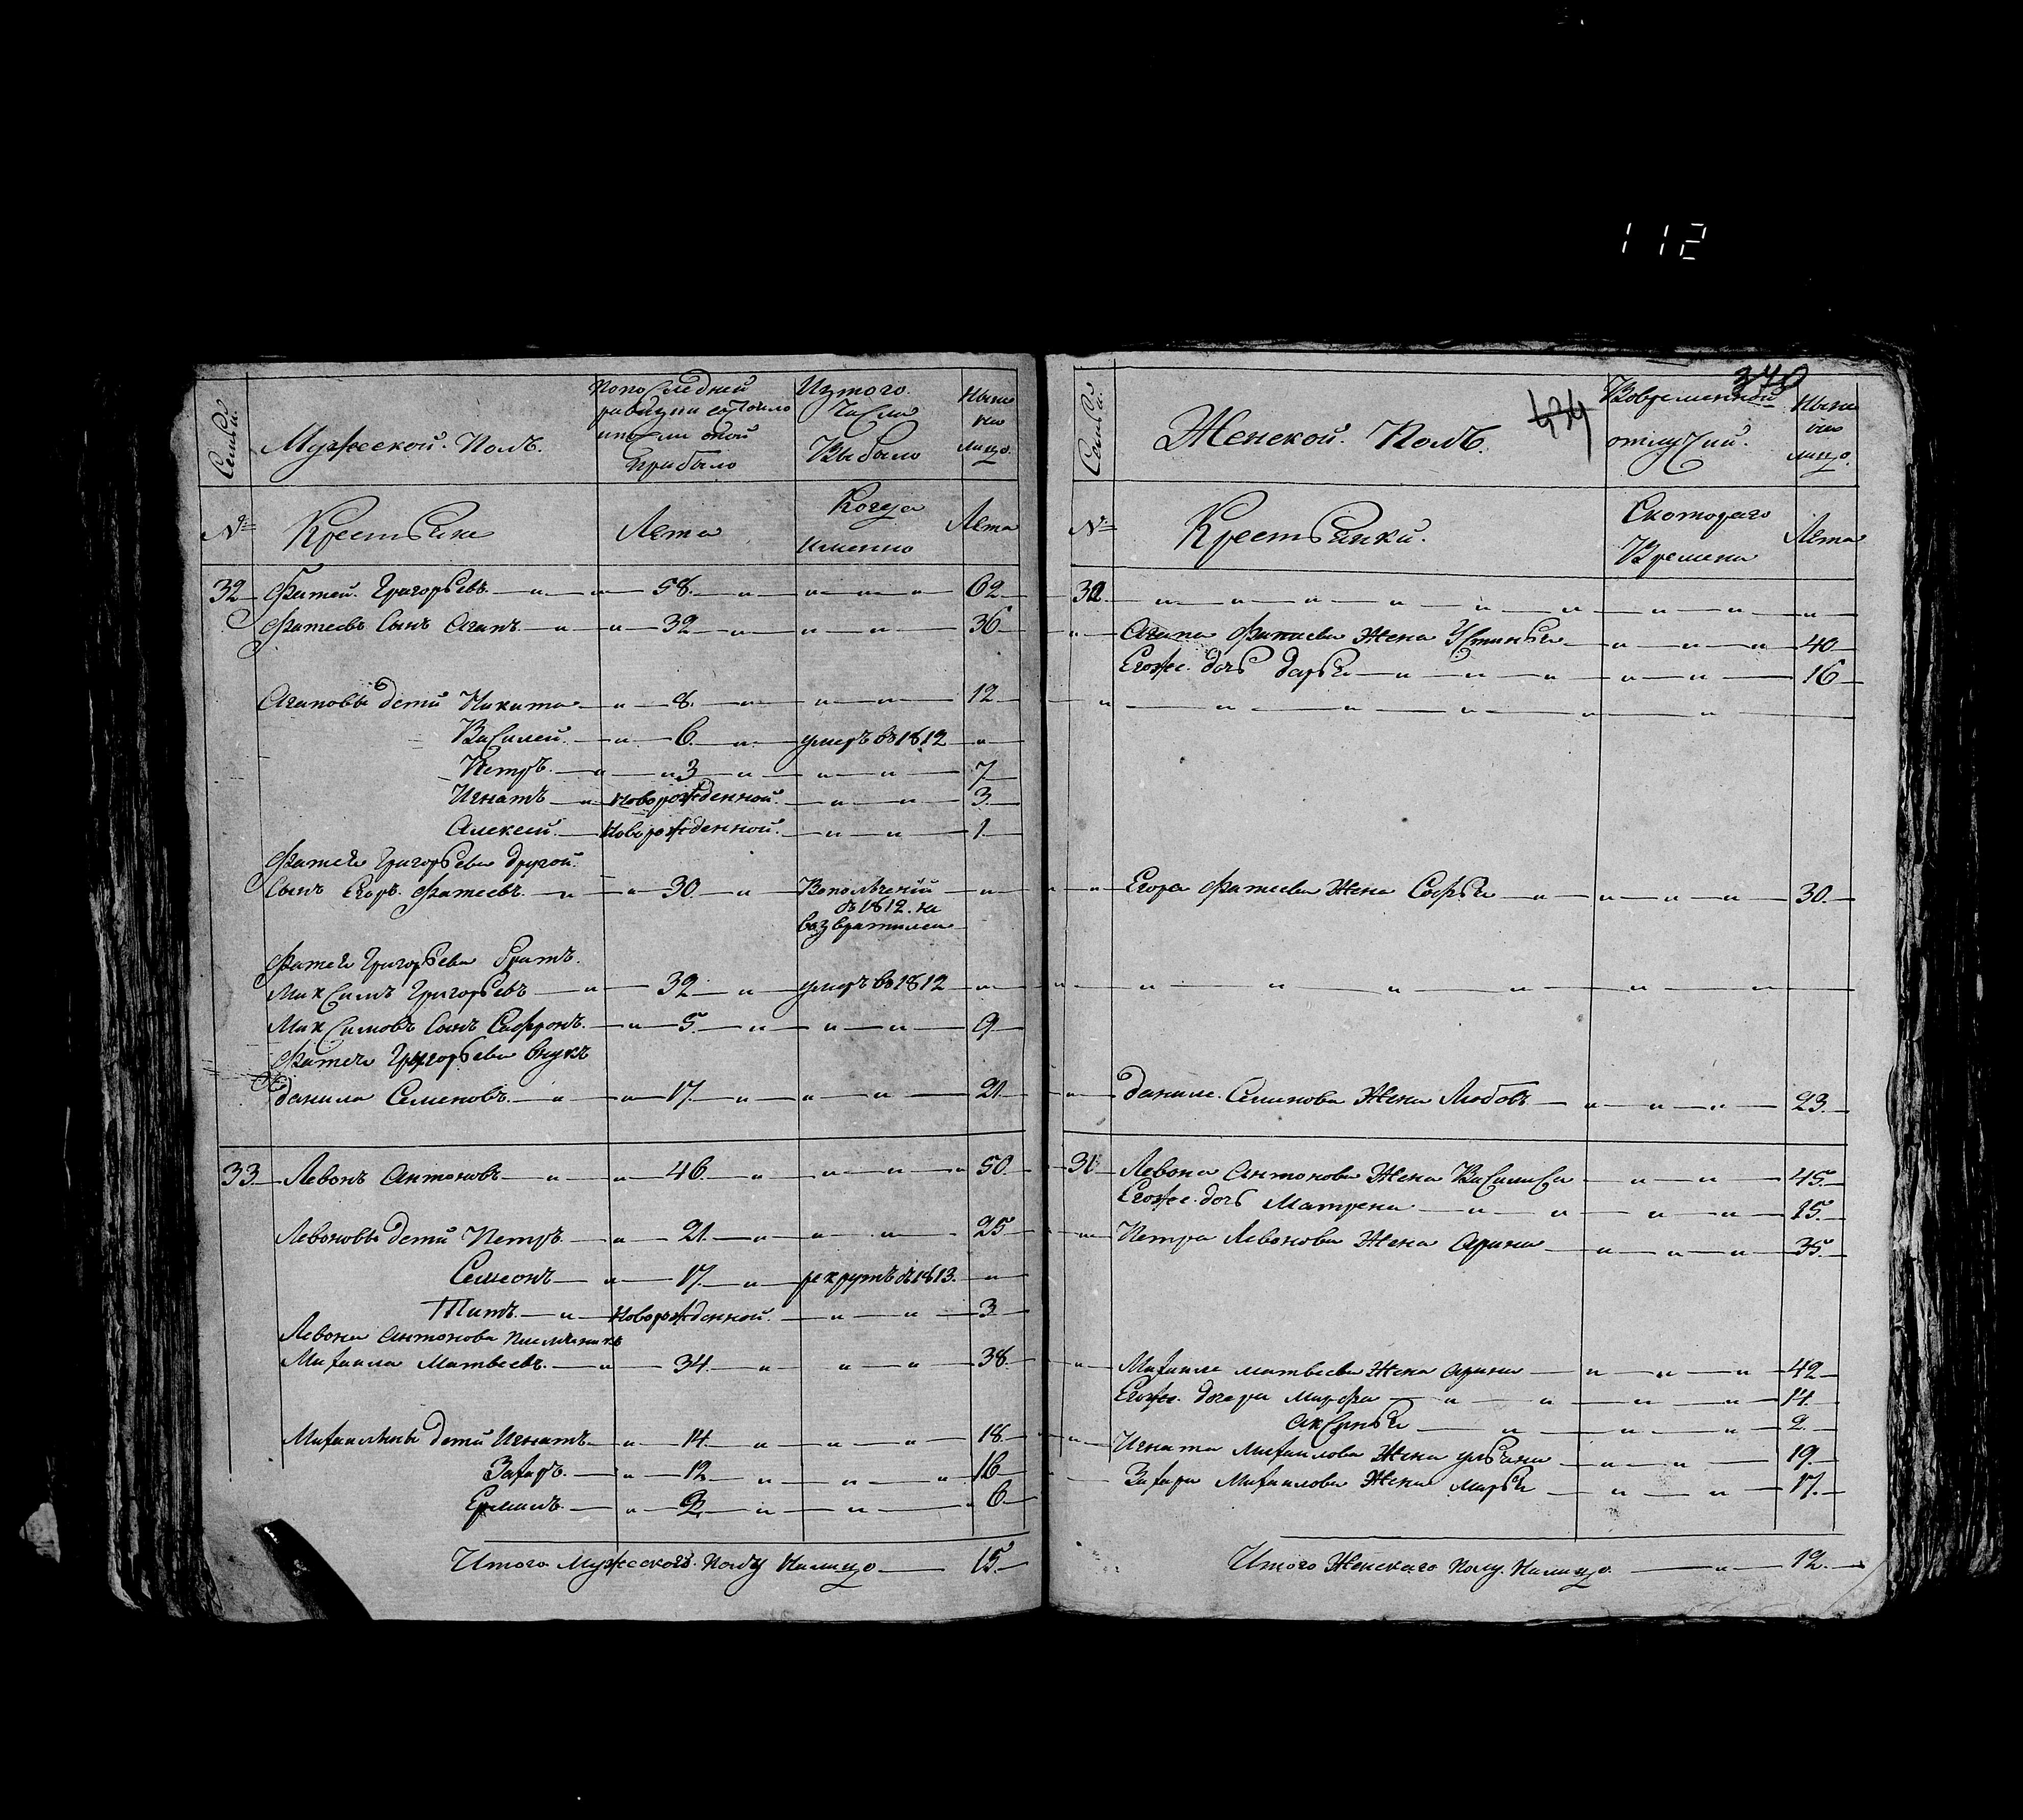 112
340
434
Семьи
Мужеской. Полъ.
По последней
ревизии состояло
и после оной
прибыло
Из того
числа
Выбыло
Ныне
на
лицо.
№
Крестьяне
Лета
Когда
имянно
Лета
32 Фатей. Григорьевъ. 58. 62
Фатеевъ Сынъ Агапъ 32 36
Агаповы дети Никита 8. 12
Василей. 6. умеръ въ 1812
Петръ. 3 7
Игнатъ Новорожденной. 3
Алексей. Новорожденной. 1
Фатея Григорьева другой
Сынъ Егоръ Фатеевъ. 30. Вополчении
въ 1812. не
возвратился
Фатея Григорьева братъ.
Максимъ Григорьевъ 32 умеръ въ 1812
Максимовъ Сынъ Сафронъ. 5. 9
Фатея Григорьева внукъ
Данила Семеновъ. 17. 21.
33 Левонъ Антоновъ 46. 50.
Левоновы дети Петръ. 21. 25
Семионъ 17. рекрутъ въ 1813.
Титъ. Новорожденной. 3
Левона Антонова племяникъ
Михаила Матвеевъ. 34. 38.
Михаилины дети Игнатъ 14. 18.
Захаръ. 12 16
Ермилъ. 2. 6
Итого Мужескаго. Полу Налицо 15.
Семьи
Женской. Полъ.
Вовременной
отлучки.
Ныне
на
лицо.
№
Крестьянки.
Скотораго
Времени
Лета
32.
Агапа Фатеева Жена Устинья 40
Егоже. дочь Дарья 16
Егора Фатеева Жена Софья 30.
Данилы Семенова Жена Любовь 23.
Левона Антонова Жена Василиса 45.
Егоже. дочь Матрена 15.
Петра Левонова Жена Арина 35.
Михаилы Матвеева Жена Арина 42
Егоже. дочери Марфа 14.
Аксинья 2.
Игната Михаилова Жена Ульяна 19.
Захара Михаилова Жена Марья 17.
Итого Женскаго Полу. Налицо. 12.